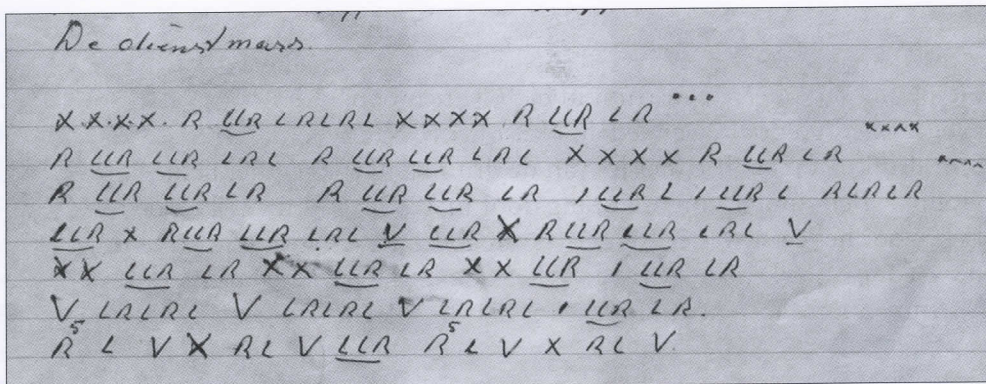 De dienstmars.
x.x.x.x. R LLR LRLRL xxxx R LLR LR ...
R LLR LLR LRL R LLR LLR LRL XXXX R LLR LR xxxx
R LLR LLR LR R LLR LLR LR , LLR L , LLR L RLRLR xxxx
LLR x RLLR LLR LRL V LLR X RLLR LLR LRL V
XX LLR LR XX LLR LR XX LLR , LLR LR
V LRLRL V LRLRL V LRLRL , LLR LR.
R5 L V X RL V LLR R5 L V X RL V.